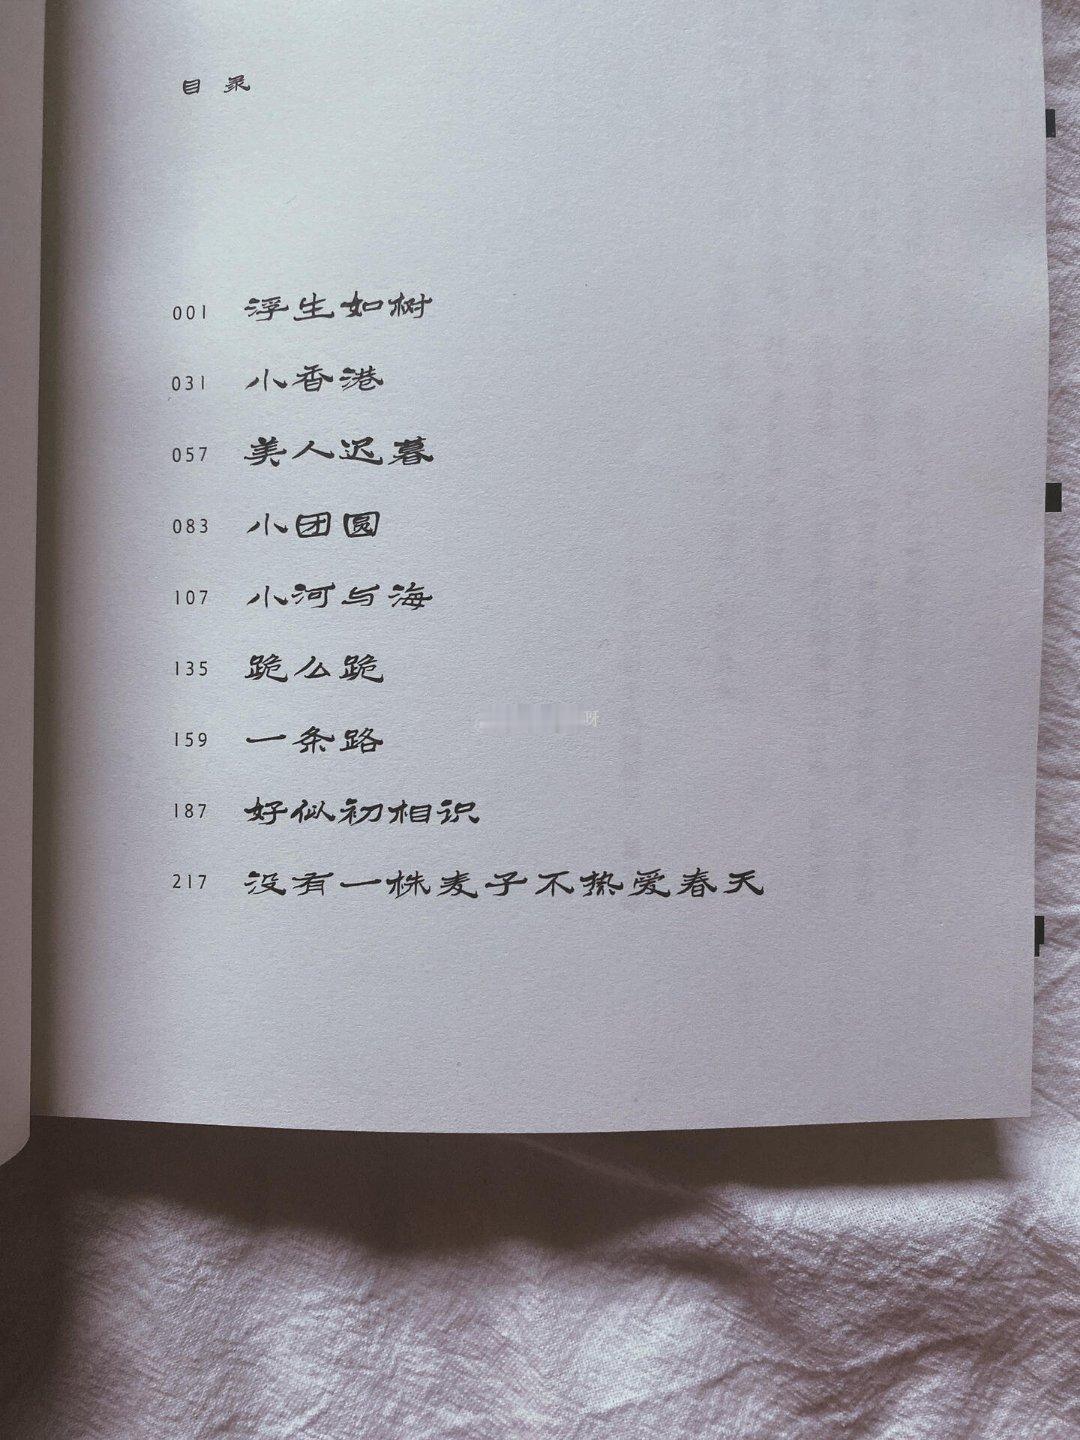 目录
001 浮生如树
031 小香港
057 美人迟暮
083 小团圆
107 小河与海
135 跪么跪
159 一条路
187 好似初相识
217 没有一株麦子不热爱春天
呀